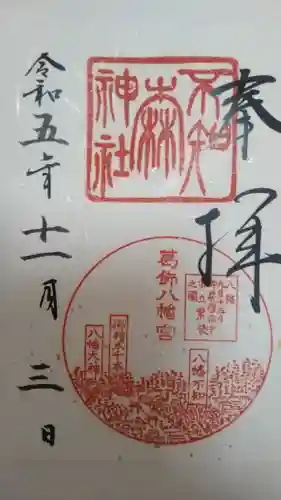 奉拝
不知
森
神社
葛飾八幡宮
八幡不知
御神木千本
八幡大神
令和五年十一月三日